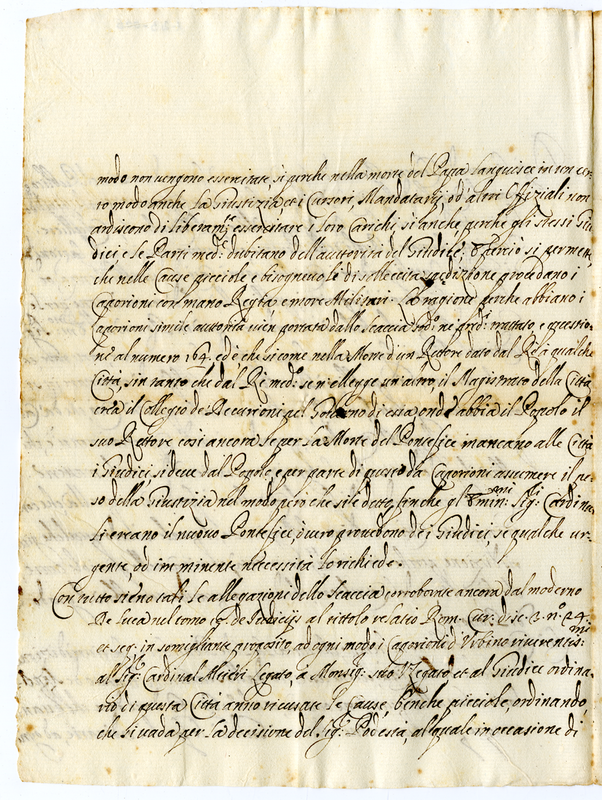 modo non vengono essercitate, si perche nella morte del Papa languisce in un cer-
to modo anche la Giustizia, et i Cursori, Mandatarij, od' altri Offiziali non
ardiscono di liberam:te essercitare i loro Carichi, si anche perche gli stessi Giu
dici, e le Parti med:e dubitano dell'autorità del Giudice, perciò si permette
che nelle Cause picciole, e bisognevoli di sollecita spedizione procedano i
Caporioni con mano Regia, e more Militari. La ragione perche abbiano i
Caporioni simile autorità vien portata dallo Scaccia nel trattato e questio-
ne al numero 164. ed è che sicome nella Morte d'un Rettore dato dal Rè a qualche
Città, sin tanto che dal Rè med:o se n'elegge un'altro, il Magistrato della Città
crea il Collegio de Decurioni pel Governo di essa, onde abbia il Popolo il
suo Rettore, così ancora se per la Morte del Pontefice mancano alle Città
i Giudici si deve dal Popolo, e per parte di questo da Caporioni assumere il pe-
so della Giustizia nel modo però che si è detto, finche gl'Emin:mi Sig:li Cardina
li creano il nuovo Pontefice, ò vero provedono dei Giudici, se qualche ur-
gente, od' imminente necessità lo richiede.
Con tutto sieno tali le allegazioni dello Scaccia corroborate ancora dal moderno
De Luca nel tomo de Iudicijs al tittolo relatio Rom: Cur: disc: 3. n.o 24.
et seq: in somigliante proposito, ad ogni modo i Caporioni d'Urbino riverentis:mi
al Sig: Cardinal Altieri Legato, a Monsig: suo V. Legato, et al Giudice ordina-
rio di questa Città anno ricusate le Cause, benche picciole, ordinando,
che si vada per la decisione del Sig:r Podestà, al quale in occasione di